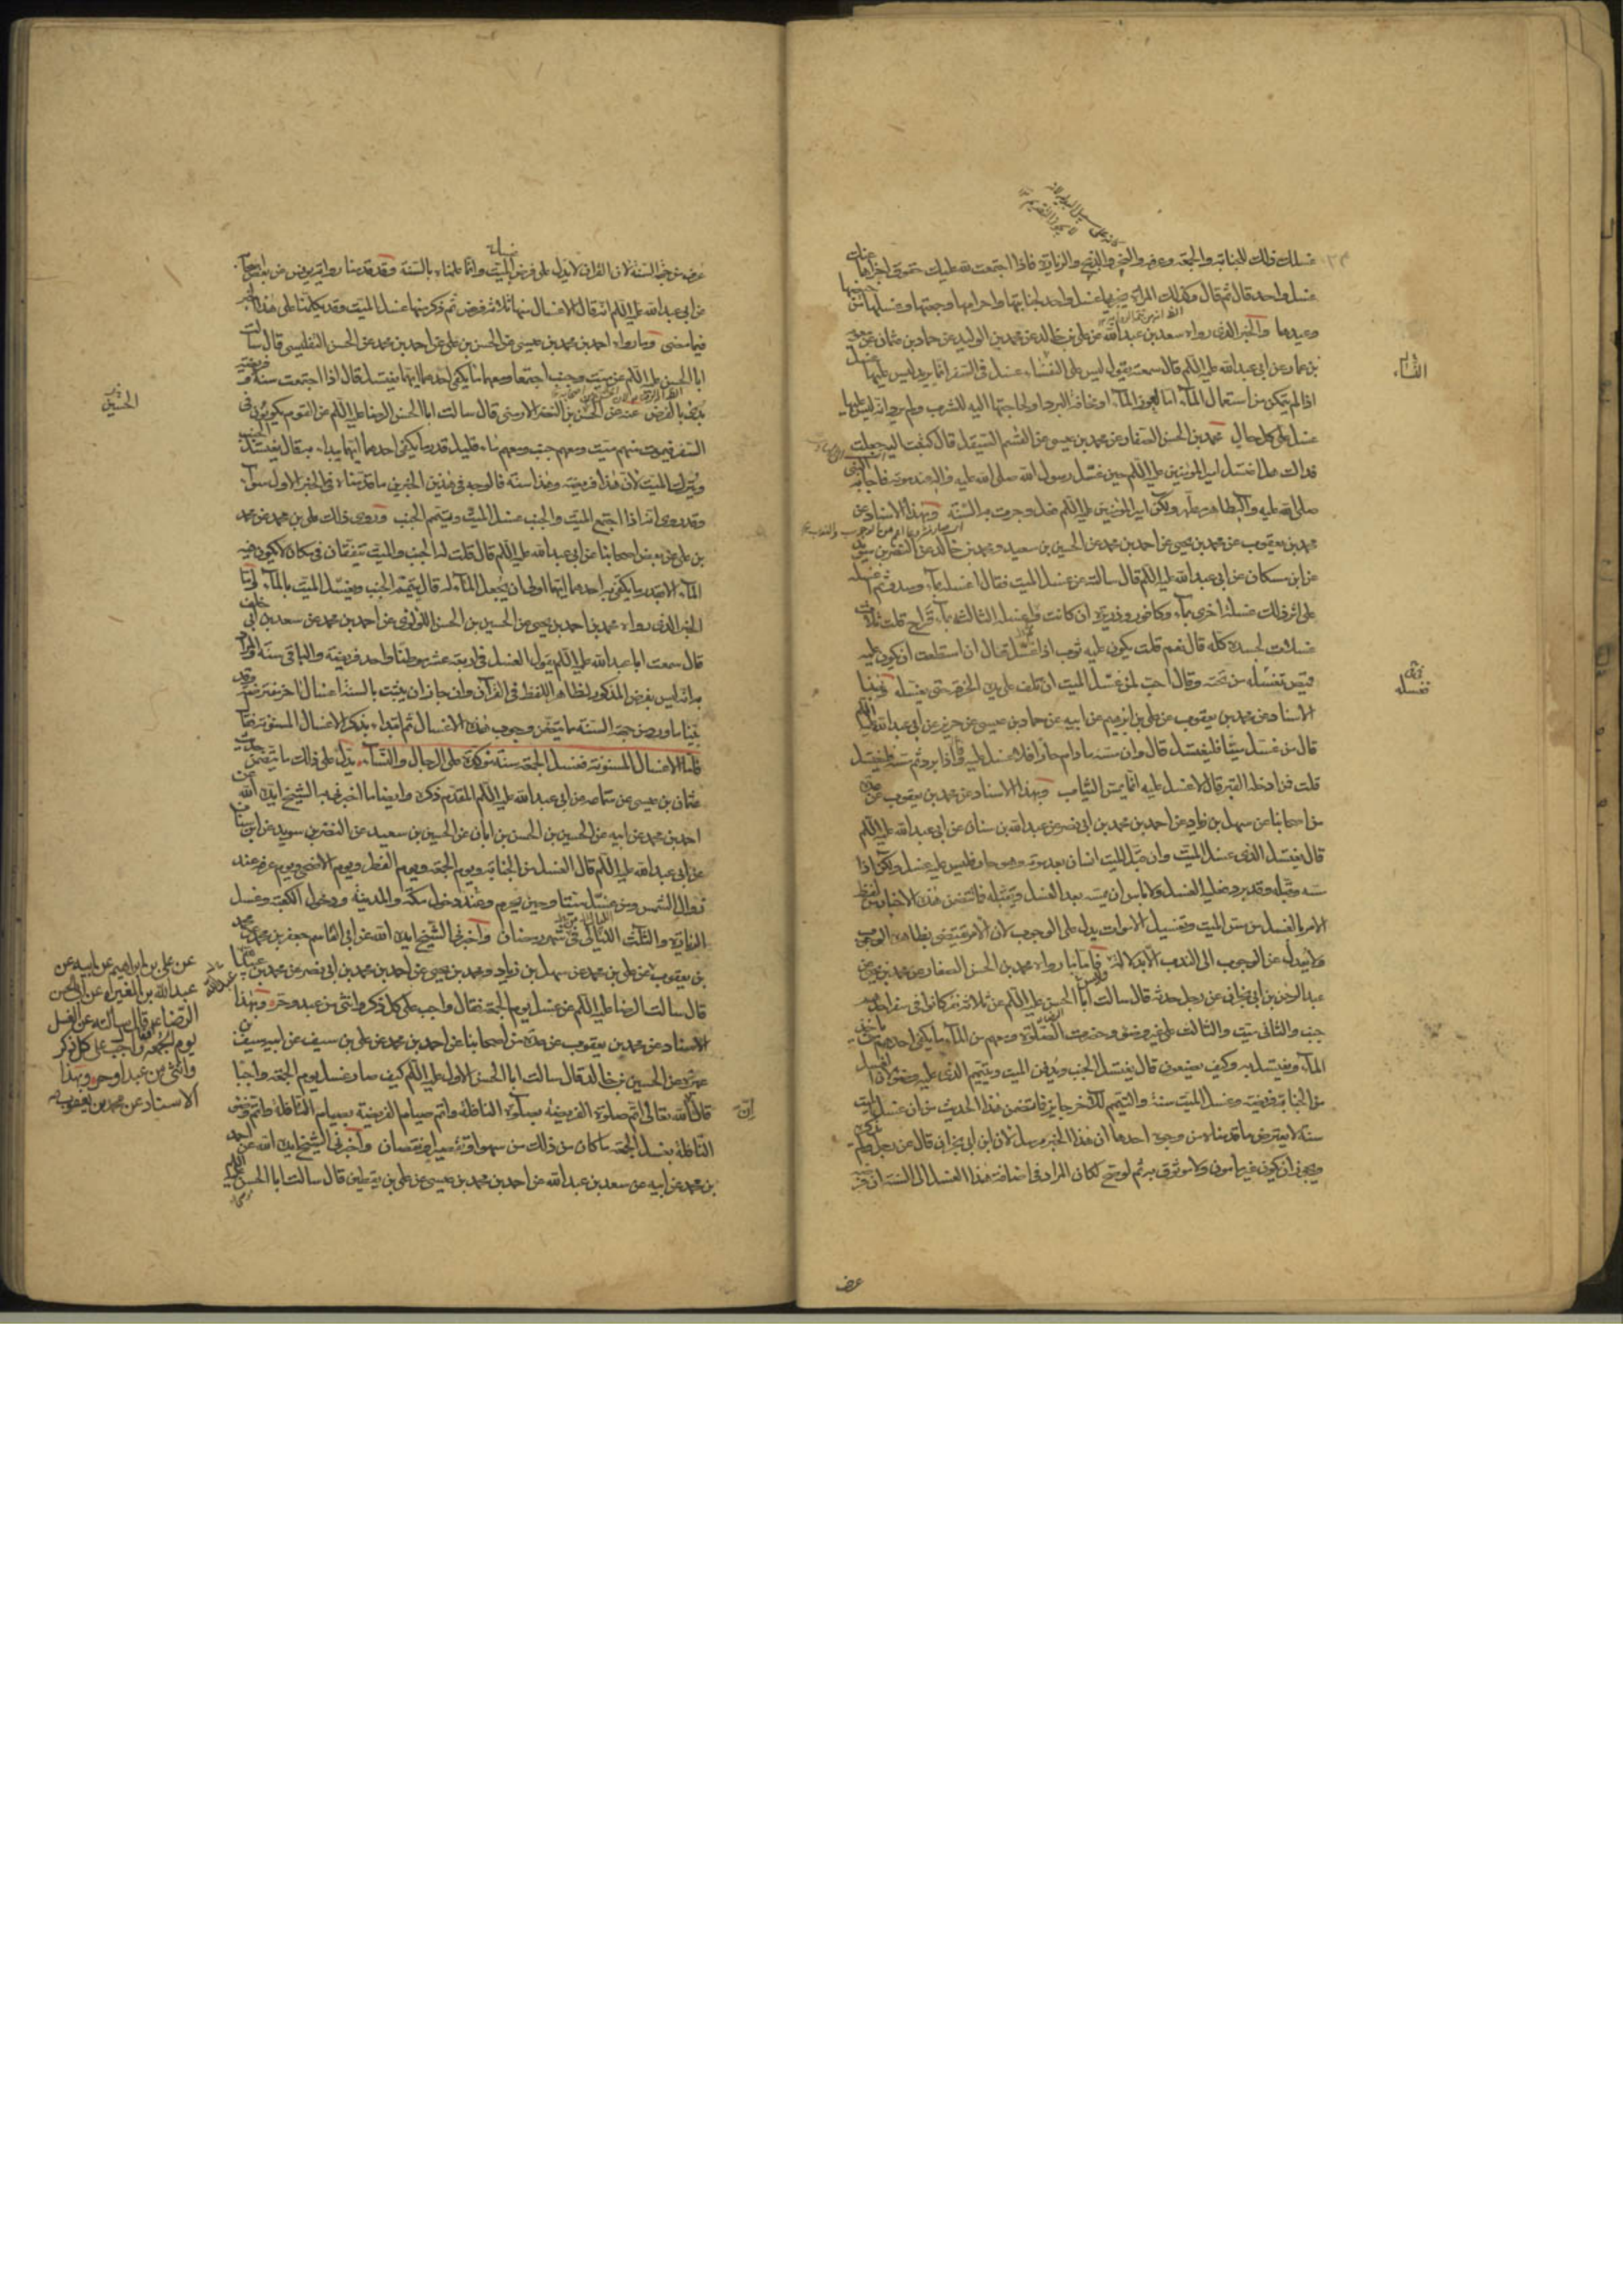 غسلك ذلك للجنابة والجمعة وعرفة والنحر والذبح والزيارة فاذا اجتمعت لله عليك حقوق اجزاها عنك
غسل واحد قال ثم قال وكذلك المراة يجزيها غسل واحد لجنابتها واحرامها وجمعتها وغسلها من حيضها
وعيدها والخبر الذى رواه سعد بن عبد الله عن على بن خالد عن محمد بن الوليد عن حماد بن عثمان عن معوية
بن عمار عن ابى عبد الله عليه السلم قال سمعته يقول ليس على النفساء غسل فى السفر انما يريد ليس عليها غسل
اذا لم يتمكن من استعمال الماء اما لعوز الماء او مخافة البرد او لحاجتها اليه للشرب ولم يرد انه ليس عليها
غسل على كل حال محمد بن الحسن الصفار عن محمد بن عيسى عن القسم الصيقل قال كتبت اليه جعلت
فداك هل اغتسل امير المؤمنين عليه السلم حين غسل رسول الله صلى الله عليه واله عند موته فاجابه النبى
صلى الله عليه وآله طاهر مطهر ولكن امير المؤمنين عليه السلم فعل وجرت به السنة وبهذا الاسناد عن
محمد بن يعقوب عن محمد بن يحيى عن احمد بن محمد عن الحسين بن سعيد ومحمد بن خالد عن النضر بن سويد
عن ابن مسكان عن ابى عبد الله عليه السلم قال سالته عن غسل الميت فقال اغسله بماء وسدر ثم اغسله
على اثر ذلك غسلة اخرى بماء وكافور وذريرة ان كانت واغسله الثالثة بماء قراح قلت ثلاث
غسلات لجسده كله قال نعم قلت يكون عليه ثوب اذا غسل قال ان استطعت ان يكون عليه
قميص تغسله من تحته وقال احب لمن غسل الميت ان يلف على يده الخرقة حتى يغسله وبهذا
الاسناد عن محمد بن يعقوب عن على بن ابرهيم عن ابيه عن حماد بن عيسى عن حريز عن ابى عبد الله عليه السلم
قال من غسل ميتا فليغتسل قال وان مسه ما دام حارا فلا غسل عليه فاذا برد ثم مسه فليغتسل
قلت فمن ادخله القبر قال لا غسل عليه انما يمس الثياب وبهذا الاسناد عن محمد بن يعقوب عن عدة
من اصحابنا عن سهل بن زياد عن احمد بن محمد بن ابى نصر عن عبد الله بن سنان عن ابى عبد الله عليه السلم
قال يغتسل الذى غسل الميت وان قبل الميت انسان بعد موته وهو حار فليس عليه غسل ولكن اذا
مسه وقبله وقد برد فعليه الغسل ولا باس ان يمسه بعد الغسل ويقبله فما تتضمن هذه الاخبار من لفظ
الامر بالغسل من مس الميت وتغسيل الاموات يدل على الوجوب لان الامر يقتضى بظاهره الوجوب
ولا يعدل عن الوجوب الى الندب الا بدلالة فاما ما رواه محمد بن الحسن الصفار عن محمد بن عيسى عن
عبد الرحمن بن ابى نجران عن رجل حدثه قال سالت ابا الحسن عليه السلم عن ثلاثة نفر كانوا فى سفر احدهم
جنب والثانى ميت والثالث على غير وضوء وحضرت الصلوة ومعهم من الماء ما يكفى احدهم من ياخذ
الماء ويغتسل به وكيف يصنعون قال يغتسل الجنب ويدفن الميت ويتيمم الذى عليه وضوء لان الغسل
من الجنابة فريضة وغسل الميت سنة والتيمم للاخر جايز فما تضمن هذا الحديث من ان غسل الميت
سنة لا يعترض ما قدمناه من وجوه احدها ان هذا الخبر مرسل لان ابن ابى نجران قال عن رجل ولم يذكره
ويجوز ان يكون غير مامون ولا موثوق به ثم لو صح لكان المراد فى اضافة هذا الغسل الى السنة ان فرضه
عرف
النساء
تغسله
عرف من جهة السنة لان القران لا يدل على فرض غسل الميت وانما علمناه بالسنة وقد قدمنا رواية يونس عن بعض اصحابنا
عن ابى عبد الله عليه السلم انه قال الاغسال منها ثلاثة فرض ثم ذكر منها غسل الميت وقد تكلمنا على هذا الخبر
فيما مضى وما رواه احمد بن محمد بن عيسى عن الحسن بن على عن احمد بن محمد عن الحسن التفليسى قال سالت
ابا الحسن عليه السلم عن ميت وجنب اجتمعا ومعهما ما يكفى احدهما ايهما يغتسل قال اذا اجتمعت سنة وفريضة
بدئ بالفرض عنه عن الحسن بن النضر الارمنى قال سالت ابا الحسن الرضا عليه السلم عن القوم يكونون فى
السفر فيموت منهم ميت ومعهم جنب ومعهم ماء قليل قدر ما يكفى احدهما ايهما يبدا به قال يغتسل الجنب
ويترك الميت لان هذا فريضة وهذا سنة فالوجه فى هذين الخبرين ما قدمناه فى الخبر الاول سواء
وقد روى انه اذا اجتمع الميت والجنب غسل الميت وتيمم الجنب وروى ذلك على بن محمد عن محمد
بن على عن بعض اصحابنا عن ابى عبد الله عليه السلم قال قلت له الجنب والميت يتفقان فى مكان لا يكون فيه
الماء الا بقدر ما يكفى به احدهما ايهما اولى ان يجعل الماء له قال يتيمم الجنب ويغسل الميت بالماء واما
الخبر الذى رواه محمد بن احمد بن يحيى عن الحسين بن الحسن اللؤلؤى عن احمد بن محمد عن سعد بن ابى خلف
قال سمعت ابا عبد الله عليه السلم يقول الغسل فى اربعة عشر موطنا واحد فريضة والباقى سنة فالمراد
به انه ليس بفرض المذكور بظاهر اللفظ فى القرآن وان جاز ان يثبت بالسنة اغسال اخر مفترضة وقد
بينا ما ورد من جهة السنة ما يتضمن وجوب هذه الاغسال ثم ابتدا بذكر الاغسال المسنونة فقال
فاما الاغسال المسنونة فغسل الجمعة سنة مؤكدة على الرجال والنساء يدل على ذلك ما تضمن حديث
عثمان بن عيسى عن سماعة عن ابى عبد الله عليه السلم المقدم ذكره وايضا ما اخبرنى به الشيخ ايده الله عن
احمد بن محمد عن ابيه عن الحسين بن الحسن بن ابان عن الحسين بن سعيد عن النضر بن سويد عن ابن سنان
عن ابى عبد الله عليه السلم قال الغسل من الجنابة ويوم الجمعة ويوم الفطر ويوم الاضحى ويوم عرفة عند
زوال الشمس ومن غسل ميتا وحين يحرم وعند دخول مكة والمدينة ودخول الكعبة وغسل
الزيارة والثلث الليالى فى شهر رمضان واخبرنى الشيخ ايده الله عن ابى القاسم جعفر بن محمد عن محمد
بن يعقوب عن على بن محمد عن سهل بن زياد ومحمد بن يحيى عن احمد بن محمد بن ابى نصر عن محمد بن عبد الله
قال سالت الرضا عليه السلم عن غسل يوم الجمعة فقال واجب على كل ذكر وانثى من عبد وحر وبهذا
الاسناد عن محمد بن يعقوب عن عدة من اصحابنا عن احمد بن محمد عن على بن سيف عن ابيه سيف بن
عميرة عن الحسين بن خالد قال سالت ابا الحسن الاول عليه السلم كيف صار غسل يوم الجمعة واجبا
قال ان الله تعالى اتم صلوة الفريضة بصلوة النافلة واتم صيام الفريضة بصيام النافلة واتم وضوء
النافلة بغسل الجمعة ما كان من ذلك من سهو او تقصير او نقصان واخبرنى الشيخ ايده الله عن احمد
بن محمد عن ابيه عن سعد بن عبد الله عن احمد بن محمد بن عيسى عن على بن يقطين قال سالت ابا الحسن عليه السلم
الحسين
عن على بن ابراهيم عن ابيه عن
عبد الله بن المغيرة عن ابى الحسن
الرضا ع قال سالته عن الغسل
يوم الجمعة فقال واجب على كل ذكر
وانثى من عبد او حر وبهذا
الاسناد عن محمد بن يعقوب
ان